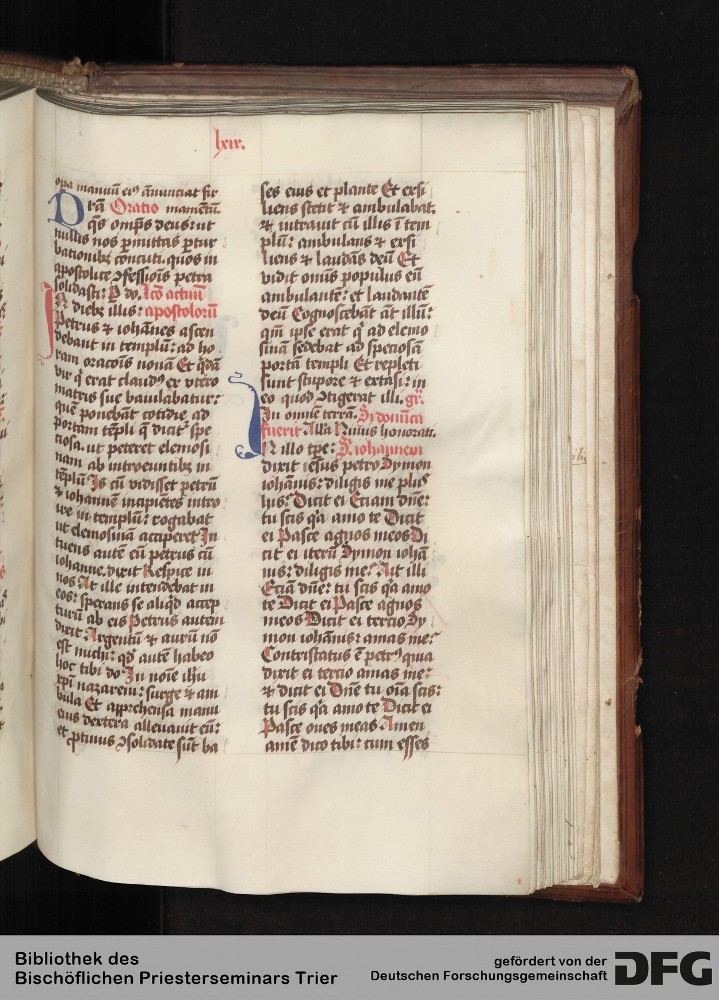 lxix.
opa manuū eiꝰ ānunciat fir
Drā Oratio mamētū.
q̄s omp̄s deus: ut
nullis nos ꝑmittas ꝑtur
bationibꝫ concuti. quos in
apostolice ꝯfessiōis petra
solidasti: P do. Lcō actuū
IN diebꝫ illis: apostolorū
Petrus ⁊ iohānes ascen
debant in templū: ad ho
ram oracōis nonā Et q̄dā
vir q̇ erat claudꝰ ex utero
matris sue baiulabatur:
quē ponebāt cotidie ad
portam tēpli q̄ dicit᷑ spe
ciosa. ut peteret elemosi
nam ab introeuntibꝫ in
tēplū Is cū vidisset petrū
⁊ iohannē incipiētes intro
ire in templū: rogabat
ut elemosinā acciperet In
tuens autē eū petrus cū
iohanne. dixit Respice in
nos At ille intendebat in
eos: sperans se aliqͥd accep
turū ab eis Petrus autem
dixit Argentū ⁊ aurū nō
est michi: qđ autē habeo
hoc tibi do In noīe ihu
xp̄i nazareni: surge ⁊ am
bula Et apprehensa manu
eius dextera alleuauit eū:
et ꝓtinus ꝯsolidate sūt ba
ses eius et plante Et exsi
liens stetit ⁊ ambulabat.
⁊ intrauit cū illis ī tem
plū: ambulans ⁊ exsi
liens ⁊ laudās deū Et
vidit omīs populus eū
ambulantē: et laudantē
deū Cognoscebāt āt illū:
qm̄ ip̄se erat q̇ ad elemo
sinā sedebat ad speciosā
portā templi Et repleti
sunt stupore ⁊ extasi: in
eo quod ꝯtigerat illi. gr̄.
In omnē terrā. Si domīca
fuerit Alla Nimis honorati.
IN illo tp̄e: S. iohannem
dixit iesus petro Symon
iohānis: diligis me plus
his? Dicit ei Eciam dn̄e:
tu scis q̄a amo te Dicit
ei Pasce agnos meos Di
cit ei iterū Symon iohā
nis: diligis me? Ait illi
Eciā dn̄e: tu scis q̄a amo
te Dicit ei Pasce agnos
meos Dicit ei tercio Sy
mon iohānis: amas me?
Contristatus ē petrꝰ quia
dixit ei tercio amas me?
⁊ dicit ei Dn̄e tu oīa scis:
tu scis q̄a amo te Dicit ei
Pasce oues meas Amen
amē dico tibi: cum esses
Bibliothek des
Bischöflichen Priesterseminars Trier
gefördert von der
Deutschen Forschungsgemeinschaft
DFG